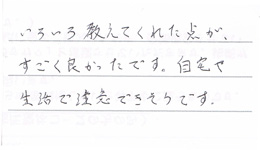 いろいろ教えてくれた点が、
すごく良かったです。自宅や
生活で達急できそうです。